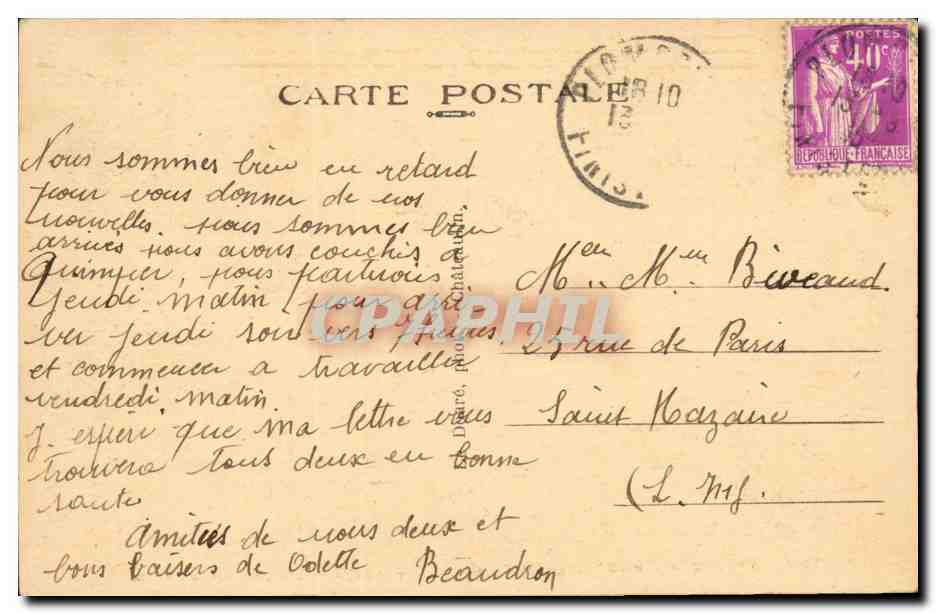 CARTE POSTALE
POSTES
40c
REPUBLIQUE FRANCAISE
10
18
Nous sommes bien en retard
pour vous donner de nos
nouvelles. nous sommes bien
arrivés nous avons couchés a
Quimper, nous partirons
jeudi matin pour arri-
ver jeudi soir vers 7 heures
et commencer a travailler
vendredi matin.
J. espère que ma lettre vous
trouvera tous deux en bonne
sante
Amitiés de nous deux et
bons baisers de Odette Beaudron
Mr .. Mme .. Biveaud.
25 rue de Paris
Saint Nazaire
(L. Inf.
photo. Châteaulin.
CPAPHIL